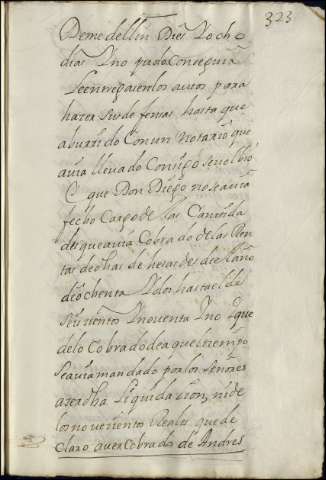 323
Demedellin Dies Yocho
dias Yno pudo Conseguir
Seentregasen los autos para
hazer Su defensa, hasta que
aburrido Con un Notario que
auia lleuado Consigo Seuolbio
Y que Don Diego no seauia
fecho Cargo de las Cantida
des que auia Cobrado de las Ren
tas de dhas heredades de el año
de ochenta Y dos hasta el de
Seiscientos Y nouenta Y no Y que
de lo Cobrado de aquel tiempo
Seauia mandado por los Señores
azer dha Liquidacion, ni de
los nouecientos Reales que de
claro auer Cobrado de Andres